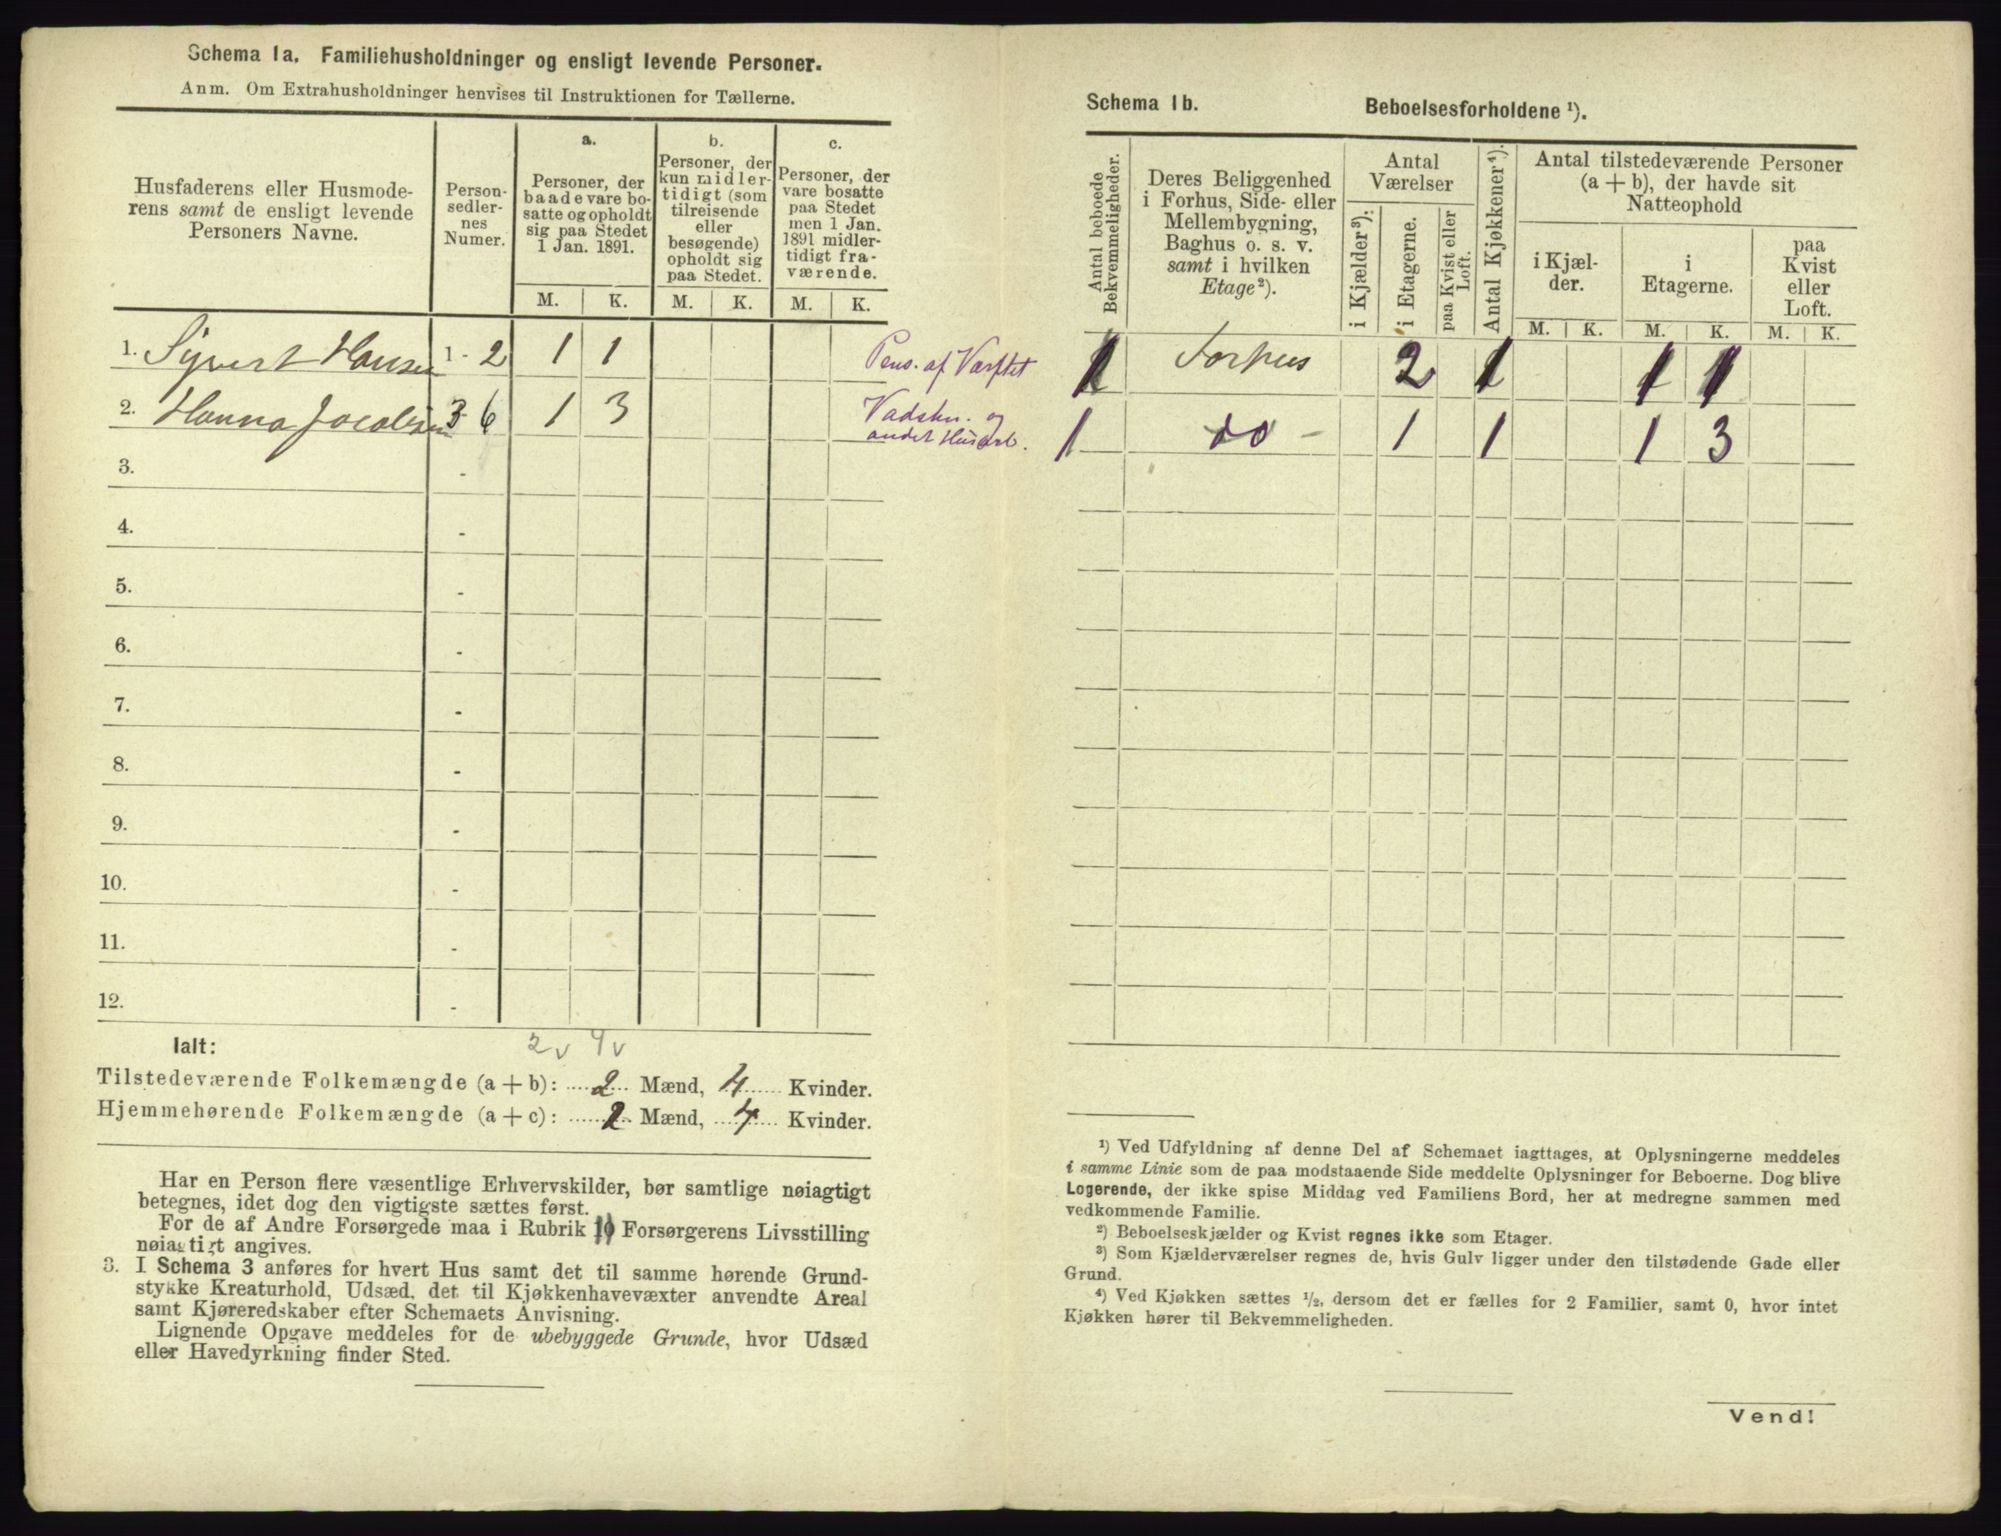 Schema 1a. Familiehusholdninger og ensligt levende Personer.
Anm. Om Extrahusholdninger henvises til Instruktionen for Tællerne.
Husfaderens eller Husmode-
rens samt de ensligt levende
Personers Navne.
Person-
sedler-
nes
Numer.
a.
Personer, der
baade vare bo-
satte og opholdt
sig paa Stedet
1 Jan. 1891.
b.
Personer, der
kun midler-
tidigt (som
tilreisende
eller
besøgende)
opholdt sig
paa Stedet.
c.
Personer, der
vare bosatte
paa Stedet
men 1 Jan.
1891 midler-
tidigt fra-
værende.
M. K. M. K. M. K.
1. Sijvert Hansen 1 - 2 1 1 Pens. af Værftet
2. Hanna Jacobsen 3 - 6 1 3 Vadskn. og
andet Husarb.
3. -
4. -
5. -
6. -
7. -
8. -
9. -
10. -
11. -
12. -
Ialt: 2 v 4 v
Tilstedeværende Folkemængde (a + b): 2 Mænd, 4 Kvinder.
Hjemmehørende Folkemængde (a + c): 2 Mænd, 4 Kvinder.
Har en Person flere væsentlige Erhvervskilder, bør samtlige nøiagtigt
betegnes, idet dog den vigtigste sættes først.
For de af Andre Forsørgede maa i Rubrik 10 Forsørgerens Livsstilling
nøiagtigt angives.
3. I Schema 3 anføres for hvert Hus samt det til samme hørende Grund-
stykke Kreaturhold, Udsæd, det til Kjøkkenhavevæxter anvendte Areal
samt Kjøreredskaber efter Schemaets Anvisning.
Lignende Opgave meddeles for de ubebyggede Grunde, hvor Udsæd
eller Havedyrkning finder Sted.
Schema 1b. Beboelsesforholdene 1).
Antal beboede
Bekvemmeligheder.
Deres Beliggenhed
i Forhus, Side- eller
Mellembygning,
Baghus o. s. v.
samt i hvilken
Etage 2).
Antal
Værelser
i Kjælder 3):
i Etagerne.
paa Kvist eller
Loft.
Antal Kjøkkener 4).
Antal tilstedeværende Personer
(a + b), der havde sit
Natteophold
i Kjæl-
der.
i
Etagerne.
paa
Kvist
eller
Loft.
M. K. M. K. M. K.
1 Forhus 2 1 1 1
1 do - 1 1 1 3
1) Ved Udfyldning af denne Del af Schemaet iagttages, at Oplysningerne meddeles
i samme Linie som de paa modstaaende Side meddelte Oplysninger for Beboerne. Dog blive
Logerende, der ikke spise Middag ved Familiens Bord, her at medregne sammen med
vedkommende Familie.
2) Beboelseskjælder og Kvist regnes ikke som Etager.
3) Som Kjælderværelser regnes de, hvis Gulv ligger under den tilstødende Gade eller
Grund.
4) Ved Kjøkken sættes 1/2, dersom det er fælles for 2 Familier, samt 0, hvor intet
Kjøkken hører til Bekvemmeligheden.
Vend!